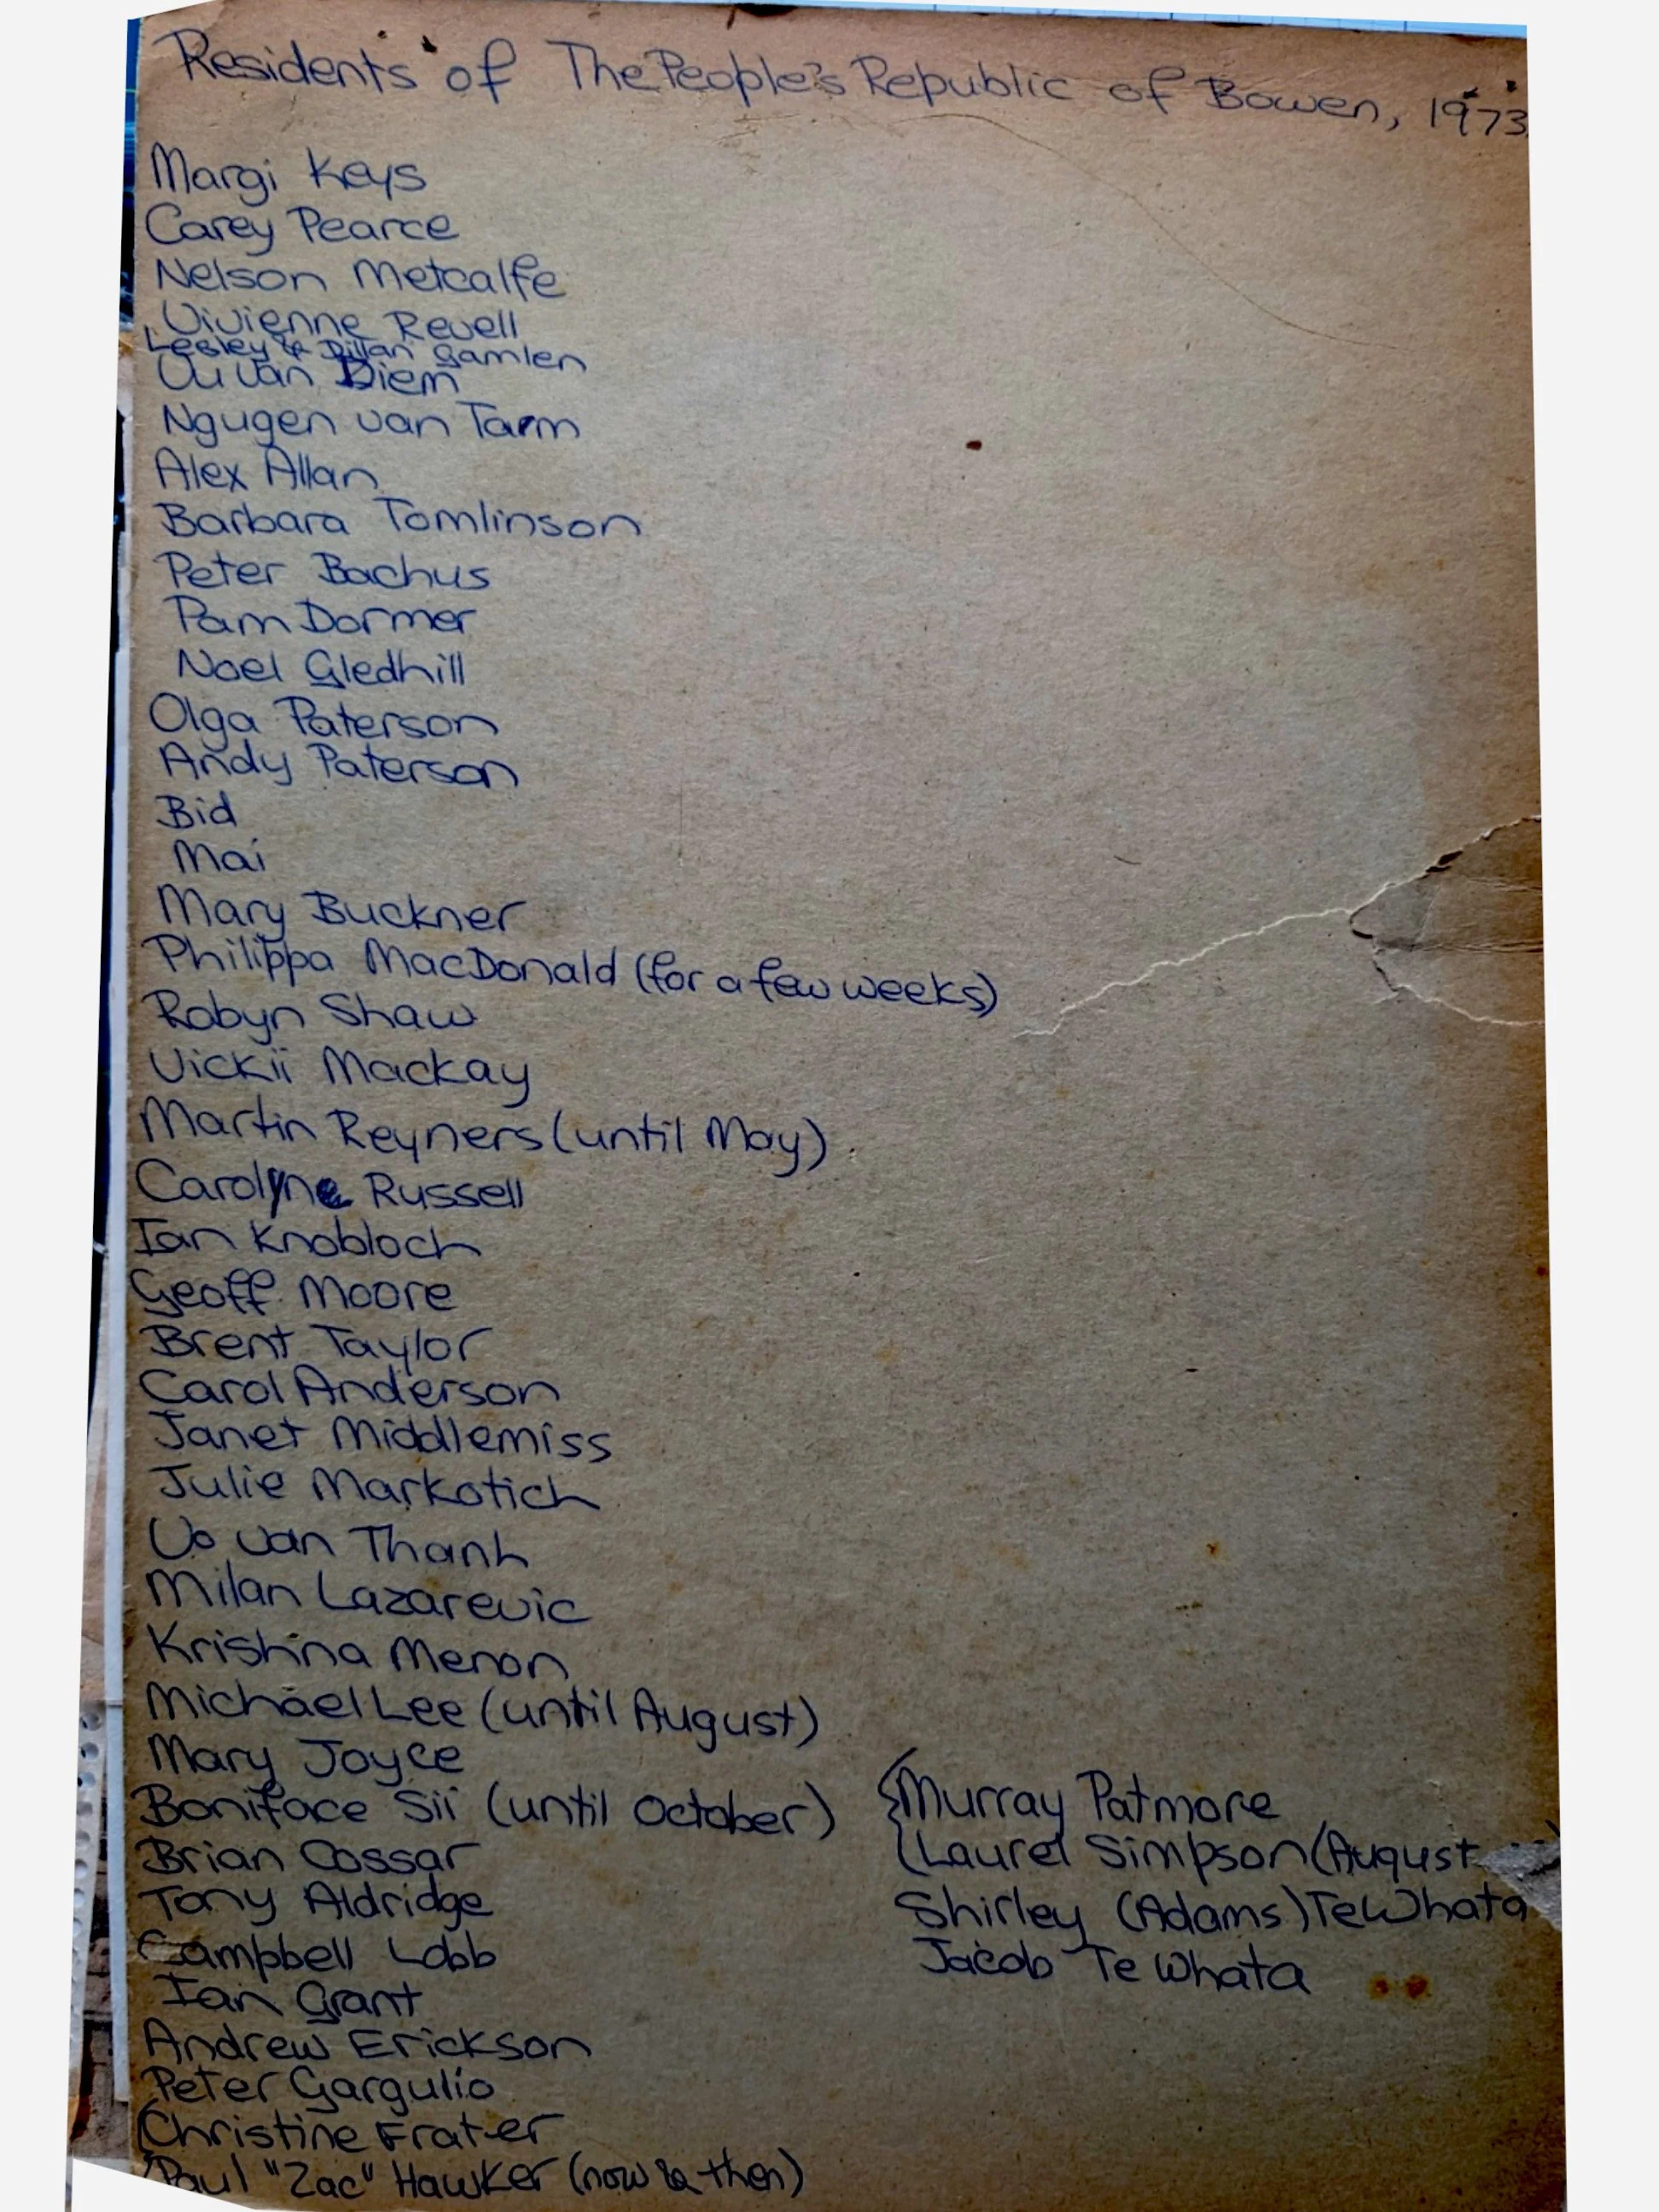 Residents of The People's Republic of Bowen, 1973
Margi Keys
Carey Pearce
Nelson Metcalfe
Vivienne Revell
Lesley & Dillan Gamlen
Vu Van Diem
Ngugen van Tarm
Alex Allan
Barbara Tomlinson
Peter Bachus
Pam Dormer
Noel Gledhill
Olga Paterson
Andy Paterson
Bid
Mai
Mary Buckner
Philippa MacDonald (for a few weeks)
Robyn Shaw
Vickii Mackay
Martin Reyners (until May)
Carolyne Russell
Ian Knobloch
Geoff Moore
Brent Taylor
Carol Anderson
Janet Middlemiss
Julie Markotich
Vo van Thanh
Milan Lazarevic
Krishna Menon
Michael Lee (until August)
Mary Joyce
Boniface Sii (until October)
Brian Cossar
Tony Aldridge
Campbell Lobb
Ian Grant
Andrew Erickson
Peter Gargulio
Christine Frater
Paul "Zac" Hawker (now & then)
Murray Patmore
Laurel Simpson (August
Shirley (Adams) Te Whata
Jacob Te Whata